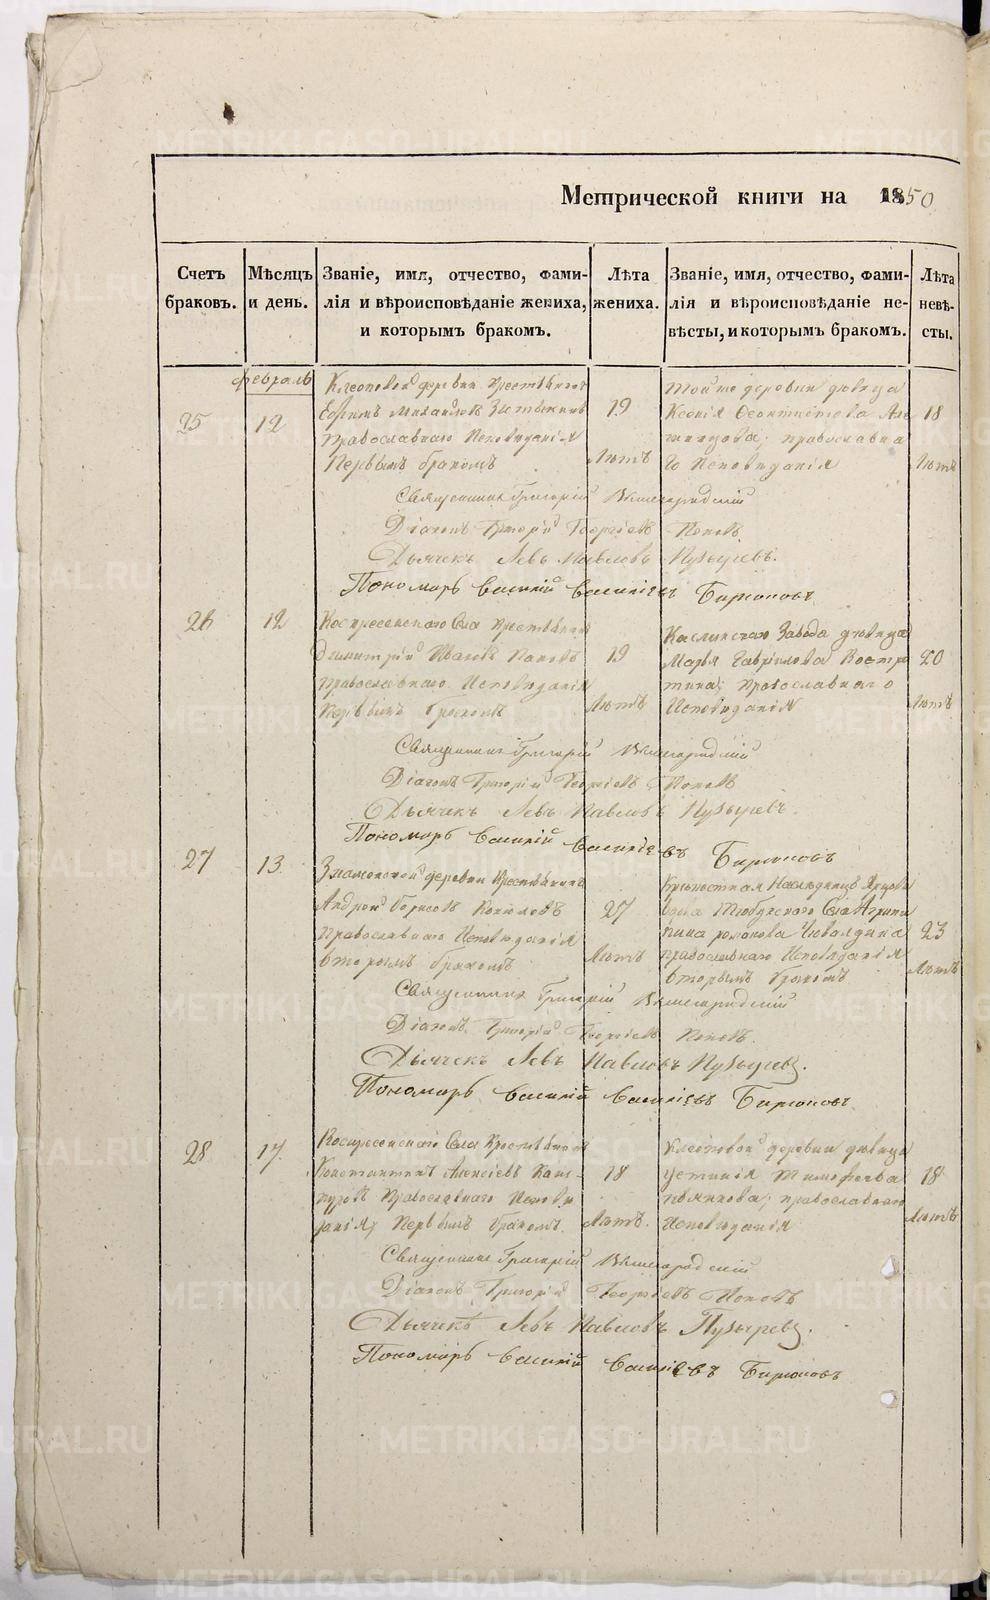 Метрической книги на 1850
Счетъ браковъ.
Мѣсяцъ и день.
Званіе, имя, отчество, фами-
лія и вѣроисповѣданіе жениха,
и которымъ бракомъ.
Лѣта жениха.
Званіе, имя, отчество, фами-
лія и вѣроисповѣданіе не-
вѣсты, и которымъ бракомъ.
Лѣта невѣ-
сты.
февраль
25
12
деревни крестьянинъ
Ефимъ Михайловъ
Православнаго Исповѣданія
Первымъ бракомъ
19
Лѣтъ
Той же деревни дѣвица
Ксенія
православна
го Исповѣданія
18
Лѣтъ
Священникъ Григорій
Діаконъ Григорій Георгіевъ Поповъ
Дьячекъ Левъ Павловъ Пузыревъ.
Пономарь Василій Василіевъ Бирюковъ
26
12
Воскресенскаго Села крестьянинъ
Димитрій Ивановъ Поповъ
Православнаго Исповѣданія
Первымъ бракомъ
19
Лѣтъ
Каслинскаго Завода дѣвица
Марья Гаврилова Востро
тина; Православнаго
Исповѣданія
20
Лѣтъ
Священникъ Григорій
Діаконъ Григорій Георгіевъ Поповъ
Дьячекъ Левъ Павловъ Пузыревъ.
Пономарь Василій Василіевъ Бирюковъ
27
13.
деревни крестьянинъ
Андрей Борисовъ
Православнаго Исповѣданія
вторымъ бракомъ
27
Лѣтъ
Наслѣдницъ
вдова Тюбукскаго Села Агрипи
пина романова
православнаго Исповѣданія
вторымъ бракомъ
23
Лѣтъ
Священникъ Григорій
Діаконъ Григорій Георгіевъ Поповъ.
Дьячекъ Левъ Павловъ Пузыревъ.
Пономарь Василій Василіевъ Бирюковъ.
28
17.
Воскресенскаго Села крестьянинъ
Константинъ Алексѣевъ
Православнаго Исповѣ
данія, Первымъ бракомъ.
18
Лѣтъ.
деревни дѣвица
Устинія Тимофеева
православнаго
Исповѣданія
18
Лѣтъ
Священникъ Григорій
Діаконъ Григорій Георгіевъ Поповъ
Дьячекъ Левъ Павловъ Пузыревъ.
Пономарь Василій Василіевъ Бирюковъ
METRIKI.GASO-URAL.RU